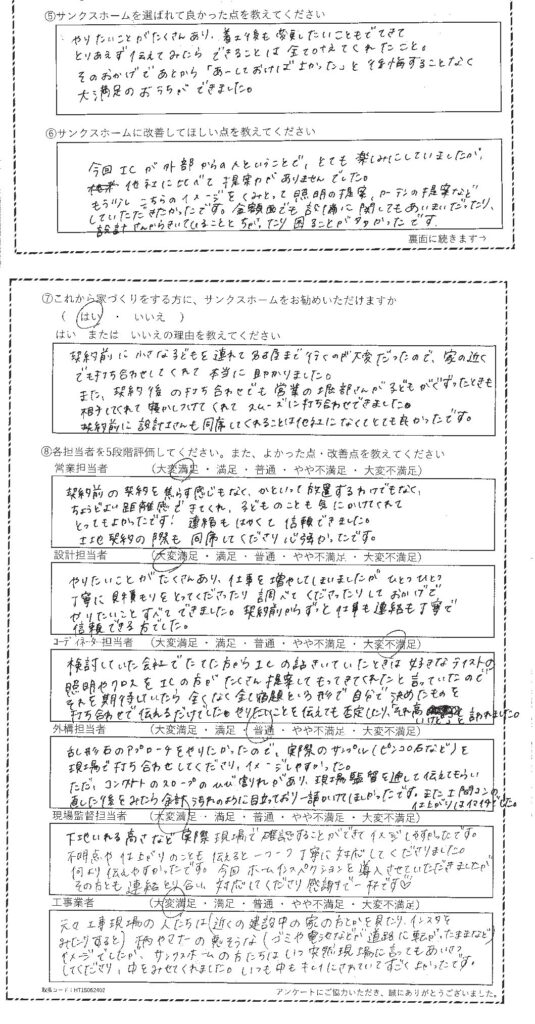 ⑤サンクスホームを選ばれて良かった点を教えてください
やりたいことがたくさんあり、着工後も変更したいこともでてきて
とりあえず伝えてみたら できることは全て叶えてくれたこと。
そのおかげであとから「あーしておけばよかった」と後悔することなく
大満足のおうちができました。
⑥サンクスホームに改善してほしい点を教えてください
今回ICが外部からの人ということで、とても楽しみにしていましたが、
他社に比べて提案力がありませんでした。
もう少しこちらのイメージをくみとって照明の提案、カーテンの提案など
していただきたかったです。金額面でも設備に関してもあいまいだったり、
設計さんからきいていることとちがったり困ることが多かったです。
裏面に続きます→
⑦これから家づくりをする方に、サンクスホームをお勧めいただけますか
( はい ・ いいえ )
はい または いいえの理由を教えてください
契約前に小さな子どもを連れて名古屋まで行くのが大変だったので、家の近く
でも打ち合わせしてくれて本当に助かりました。
また、契約後の打ち合わせでも営業の堀部さんが子どもがぐずったときも
相手してくれて寝かしつけてくれてスムーズに打ち合わせできました。
契約前に設計さんも同席してくれることは他社になくてとても良かったです。
⑧各担当者を5段階評価してください。また、よかった点・改善点を教えてください
営業担当者 (大変満足・満足・普通・やや不満足・大変不満足)
契約前の契約を焦らす感じもなく、かといって放置するわけでもなく、
ちょうどよい距離感できてくれ、子どものことも気にかけてくれて
とってもよかったです! 連絡もはやくて信頼できました。
土地契約の際も同席してくださり心強かったです。
設計担当者 (大変満足・満足・普通・やや不満足・大変不満足)
やりたいことがたくさんあり、仕事を増やしてしまいましたがひとつひとつ
丁寧に見積もりをとってくださったり調べてくださったりしておかげで
やりたいことすべてできました。契約前からずっと仕事も連絡も丁寧で
信頼できる方でした。
コーディネーター担当者 (大変満足・満足・普通・やや不満足・大変不満足)
検討していた会社でたてた方からICの話きいていたときは好きなテイストの
照明やクロスをICの方がたくさん提案してもってきてくれたと言っていたので
それを期待していたら全くなく全て宿題という形で自分で決めたものを
打ち合わせで伝えるだけでした。やりたいことを伝えても否定したり、「それ高いけど」と言われました。
外構担当者 (大変満足・満足・普通・やや不満足・大変不満足)
乱形石のアプローチをやりたかったので、実際のサンプル(ピンコロ石など)を
現場で打ち合わせしてくださり、イメージしやすかった。
ただ、コンクリートのスロープのひび割れがあり、現場監督を通して伝えてもらい
直した後をみたら余計うちわのように目立っており一言かけてほしかったです。また土間コンの
仕上がりはイマイチでした。
現場監督担当者 (大変満足・満足・普通・やや不満足・大変不満足)
下地いれる高さなど実際現場で確認することができてイメージしやすかったです。
不明点や仕上がりのことも伝えると一つ一つ丁寧に対応してくださりました。
何より伝えやすかったです。今回ホームインスペクションを導入させていただきましたが
その方とも連絡とり合い、対応してくださり感謝で一杯です♡
工事業者 (大変満足・満足・普通・やや不満足・大変不満足)
元々工事現場の人たちは(近くの建設中の家の方とかを見たり、インスタを
みたりすると)柄やマナーの悪そうな(ゴミや電池などが道路に転がったままなど)
イメージでしたが、サンクスホームの方たちはいつ突然現場に言ってもあいさつ
してくださり、中をみせてくれました。いつも中もキレイにされていてすごくよかったです。
取扱コード:HT15062402
アンケートにご協力いただき、誠にありがとうございました。